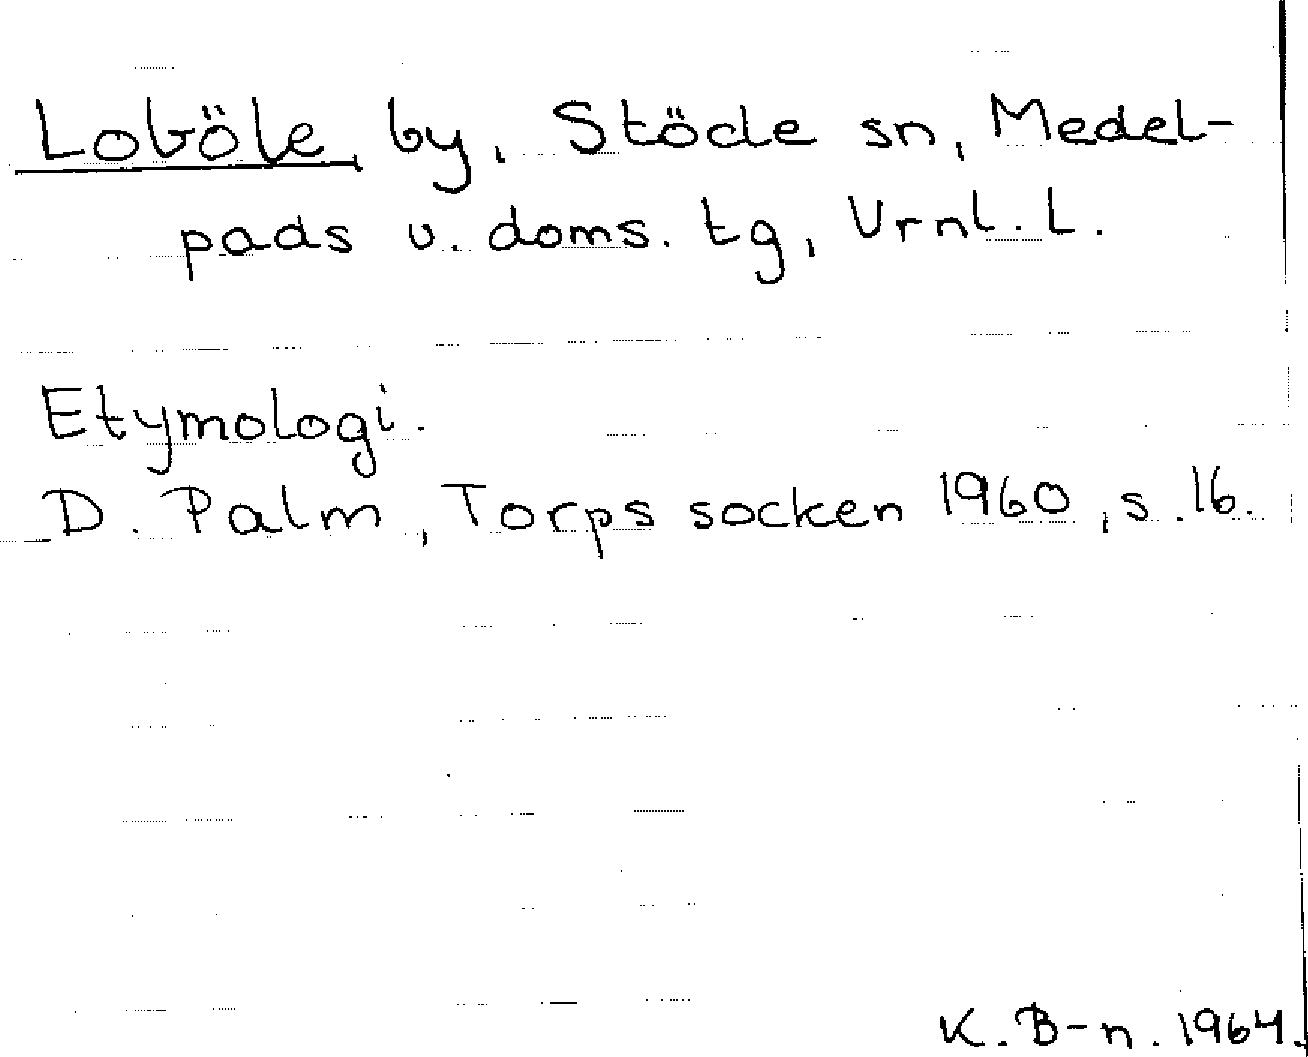 Loböle, by, Stöde sn, Medel-
pads v. doms. tg, Vrnl. L.
Etymologi.
D. Palm, Torps socken 1960, s. 16.
K. B-n. 1964.